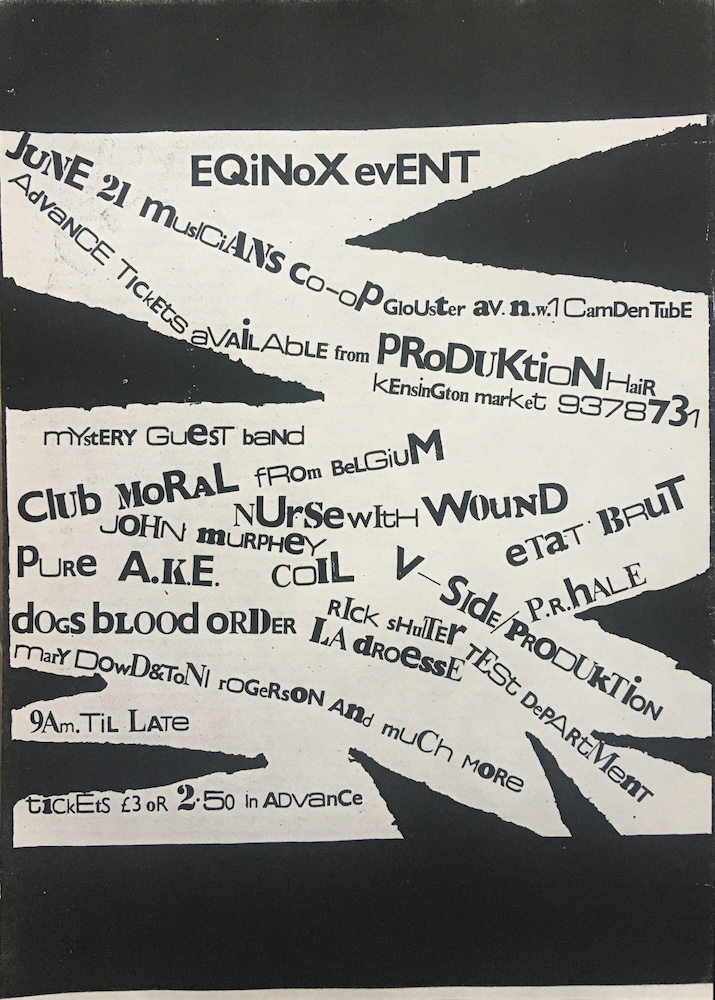 EQiNoX evENT
JuNE 21 musiCiANS Co-op GloUster av. n.w.1 CamDenTubE
AdvaNCE TickEts aVAiLAbLE from PRoDUKtioN HaiR
kEnsinGton market 9378731
mYstERY GuesT band
Club MoRAL fROm BeLGiuM
NUrSe wItH WOunD
JOHN muRPHeY
eTaT BRuT
PuRe A.K.E. COIL V-Side/PRODUKTiON
P.R.hALE
dOGs bLOOd oRDER RIck sHaTTeR TESt DePARtMenT
LA dROesSE
MarY DowD&ToNI rOGeRsON And muCh MORe
9Am. TiL LATe
tickEtS £3 oR 2·50 in ADvanCe